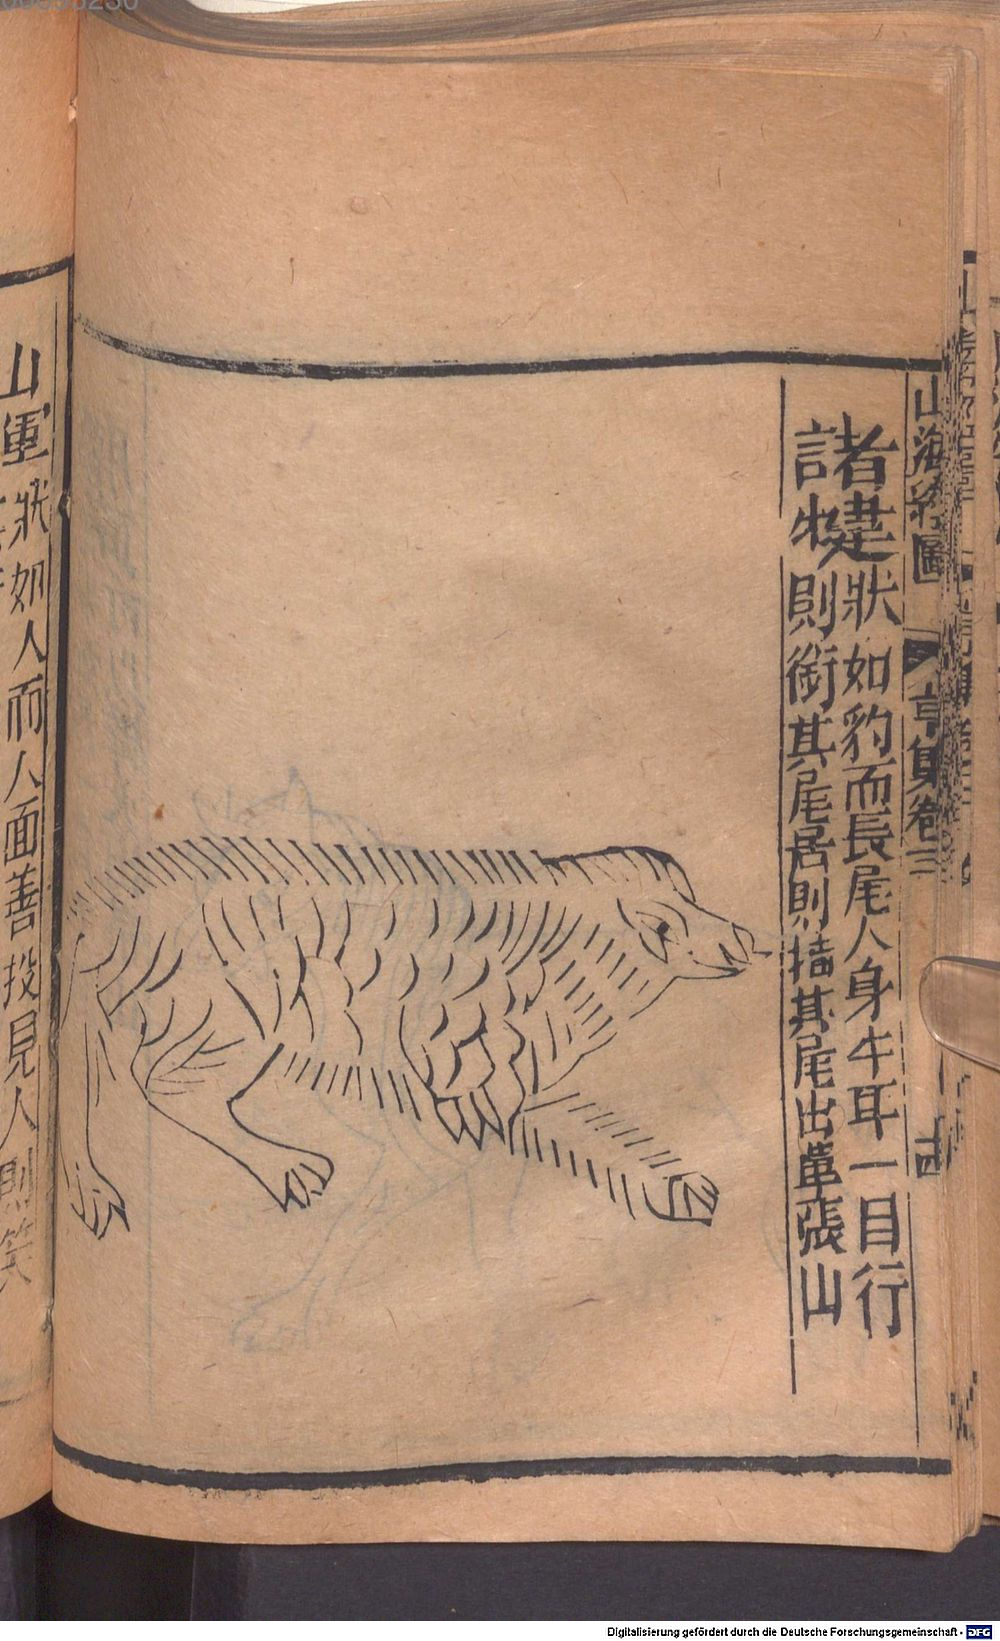 山海經圖 亨集卷三
諸犍 狀如豹而長尾人身牛耳一目行
則銜其尾居則其尾出單張山
狀如人而人面善投見人則笑
Digitalisierung gefördert durch die Deutsche Forschungsgemeinschaft - DFG